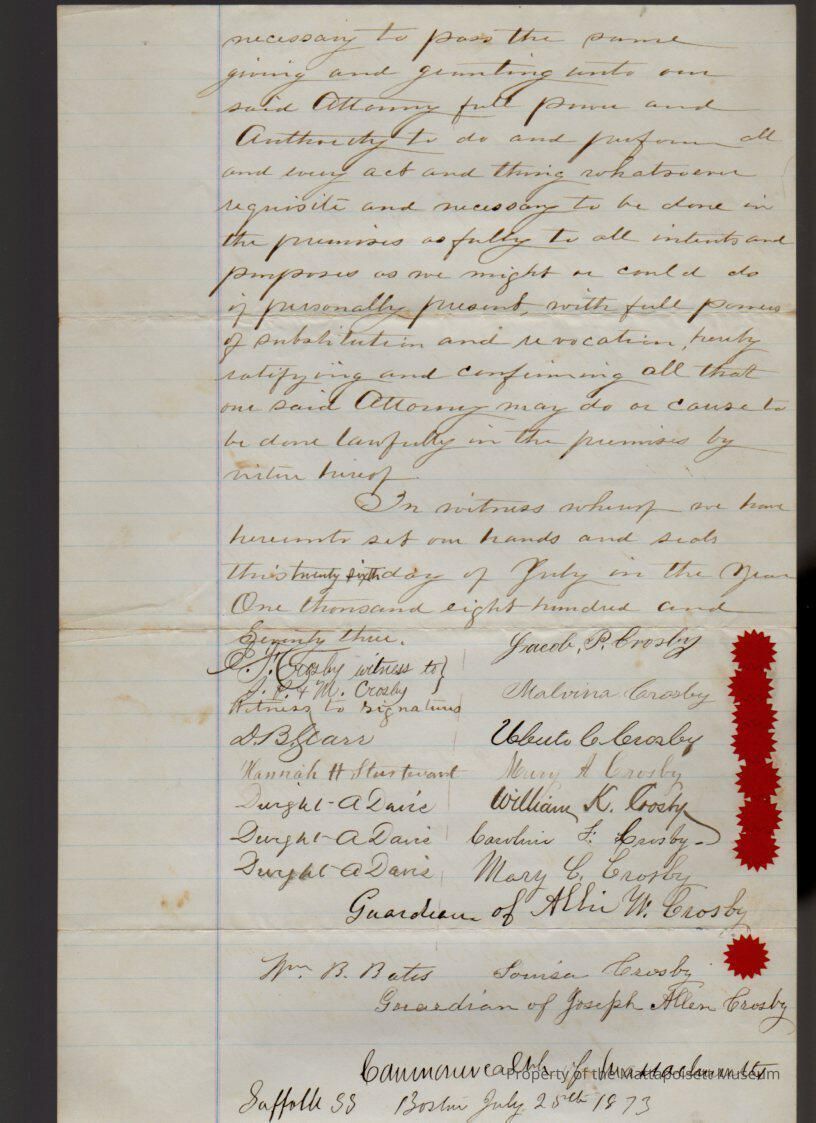 necessary to pass the same
giving and granting unto our
said Attorney full power and
Authority to do and perform all
and every act and thing whatsoever
requisite and necessary to be done in
the premises as fully to all intents and
purposes as we might or could do
if personally present, with full powers
of substitution and revocation, hereby
ratifying and confirming all that
our said Attorney may do or cause to
be done lawfully in the premises by
virtue hereof
In witness whereof we have
hereunto set our hands and seals
this twenty sixth day of July in the Year
One thousand eight hundred and
Seventy three. Jacob. P. Crosby
Crosby witness to }
J. P. & M. Crosby } Malvina Crosby
Witness to signature
D. B. Starr Uberto C. Crosby
Hannah H Sturtevant Mary A Crosby
Dwight A Davis William K. Crosby
Dwight A Davis Caroline F. Crosby
Dwight A Davis Mary C. Crosby
Guardian of Allie W. Crosby
Wm B. Bates Louisa Crosby
Guardian of Joseph Allen Crosby
Commonwealth of Massachusetts
Property of the Mattapoisett Museum
Suffolk SS Boston July 25th 1873